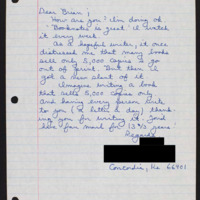 Dear Brian,
How are you? I'm doing ok.
"Booknotes is great" I watch
it every week.
As a hopeful writer, it once
distressed me that many books
sell only 5,000 copies & go
out of print. But then I
got a new slant of it
Imagine writing a book
that sells 5,000 copies only
and having every person write
to you (2 letters a day) thank-
ing you for writing it. You'd
the far mark for 13 ½ years.
Regards,
Concordia, Ks 66901